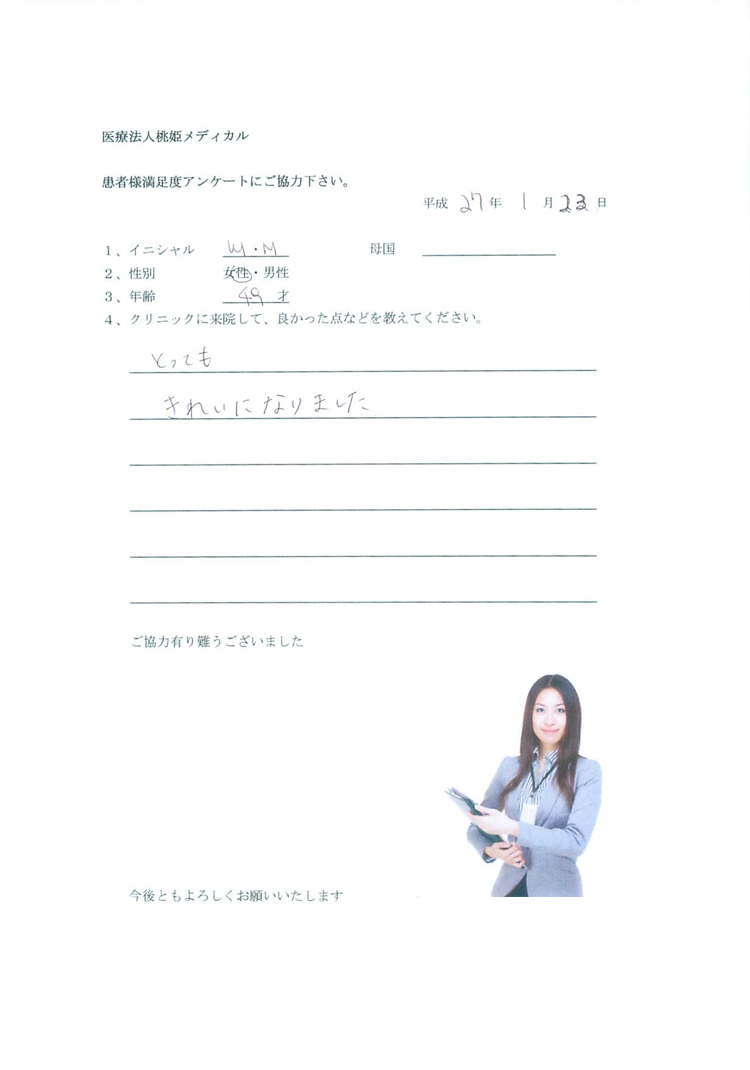 医療法人桃姫メディカル
患者様満足度アンケートにご協力下さい。
平成 27 年 1 月 23 日
1、イニシャル M・M 母国
2、性別 女性・男性
3、年齢 49 才
4、クリニックに来院して、良かった点などを教えてください。
とっても
きれいになりました
ご協力有り難うございました
今後ともよろしくお願いいたします